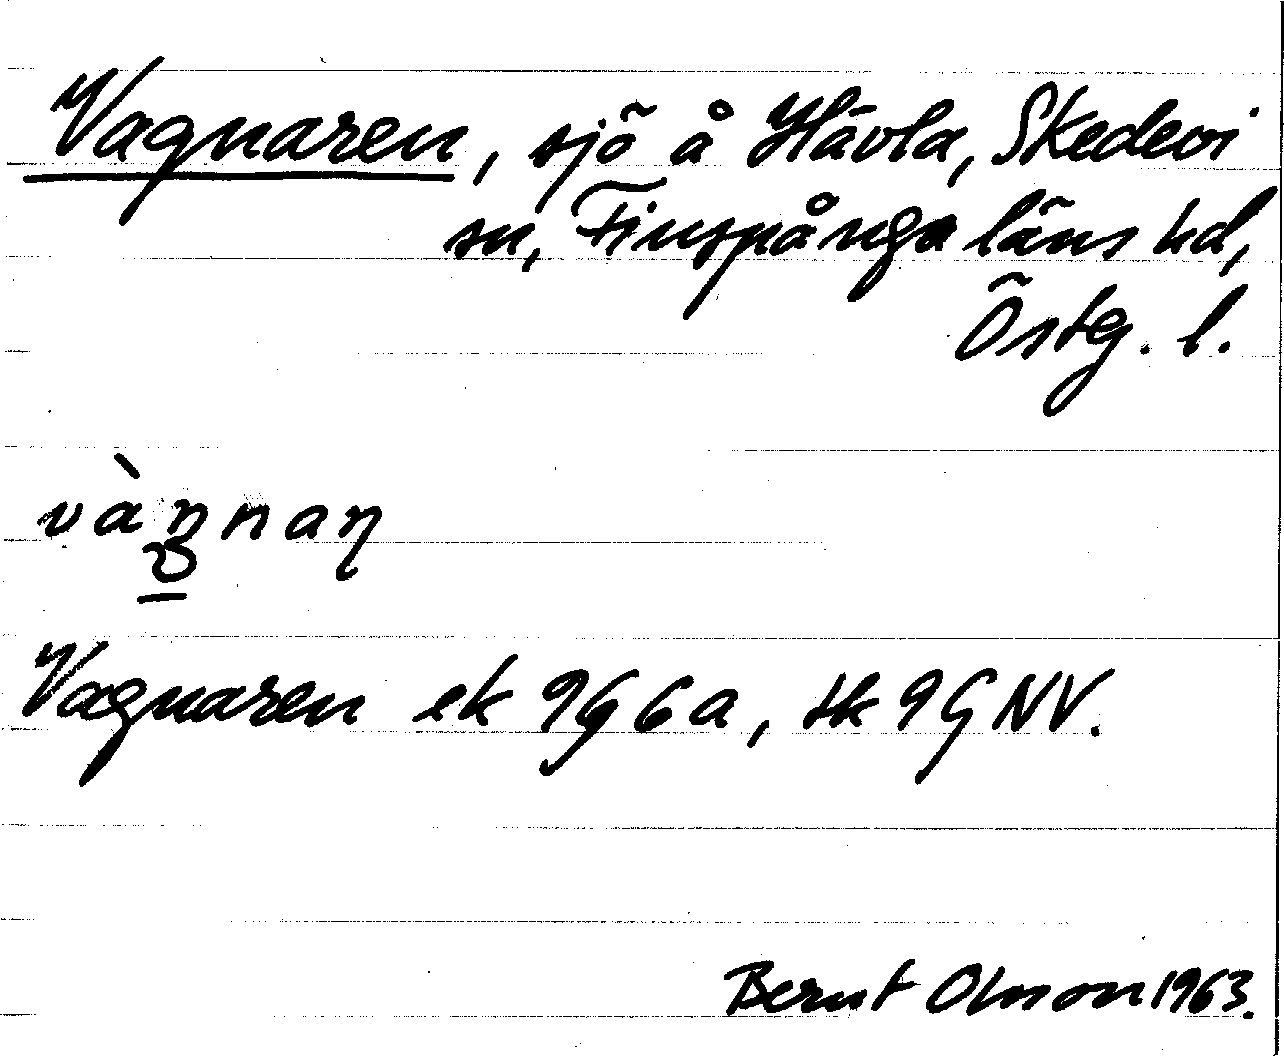 Vagnaren, sjö å Hävla, Skedevi
sn, Finspånga läns hd,
Östg. l.
vàŋnaɳ
Vagnaren ek 9G 6a, tk 9G NV.
Bernt Olsson 1963.